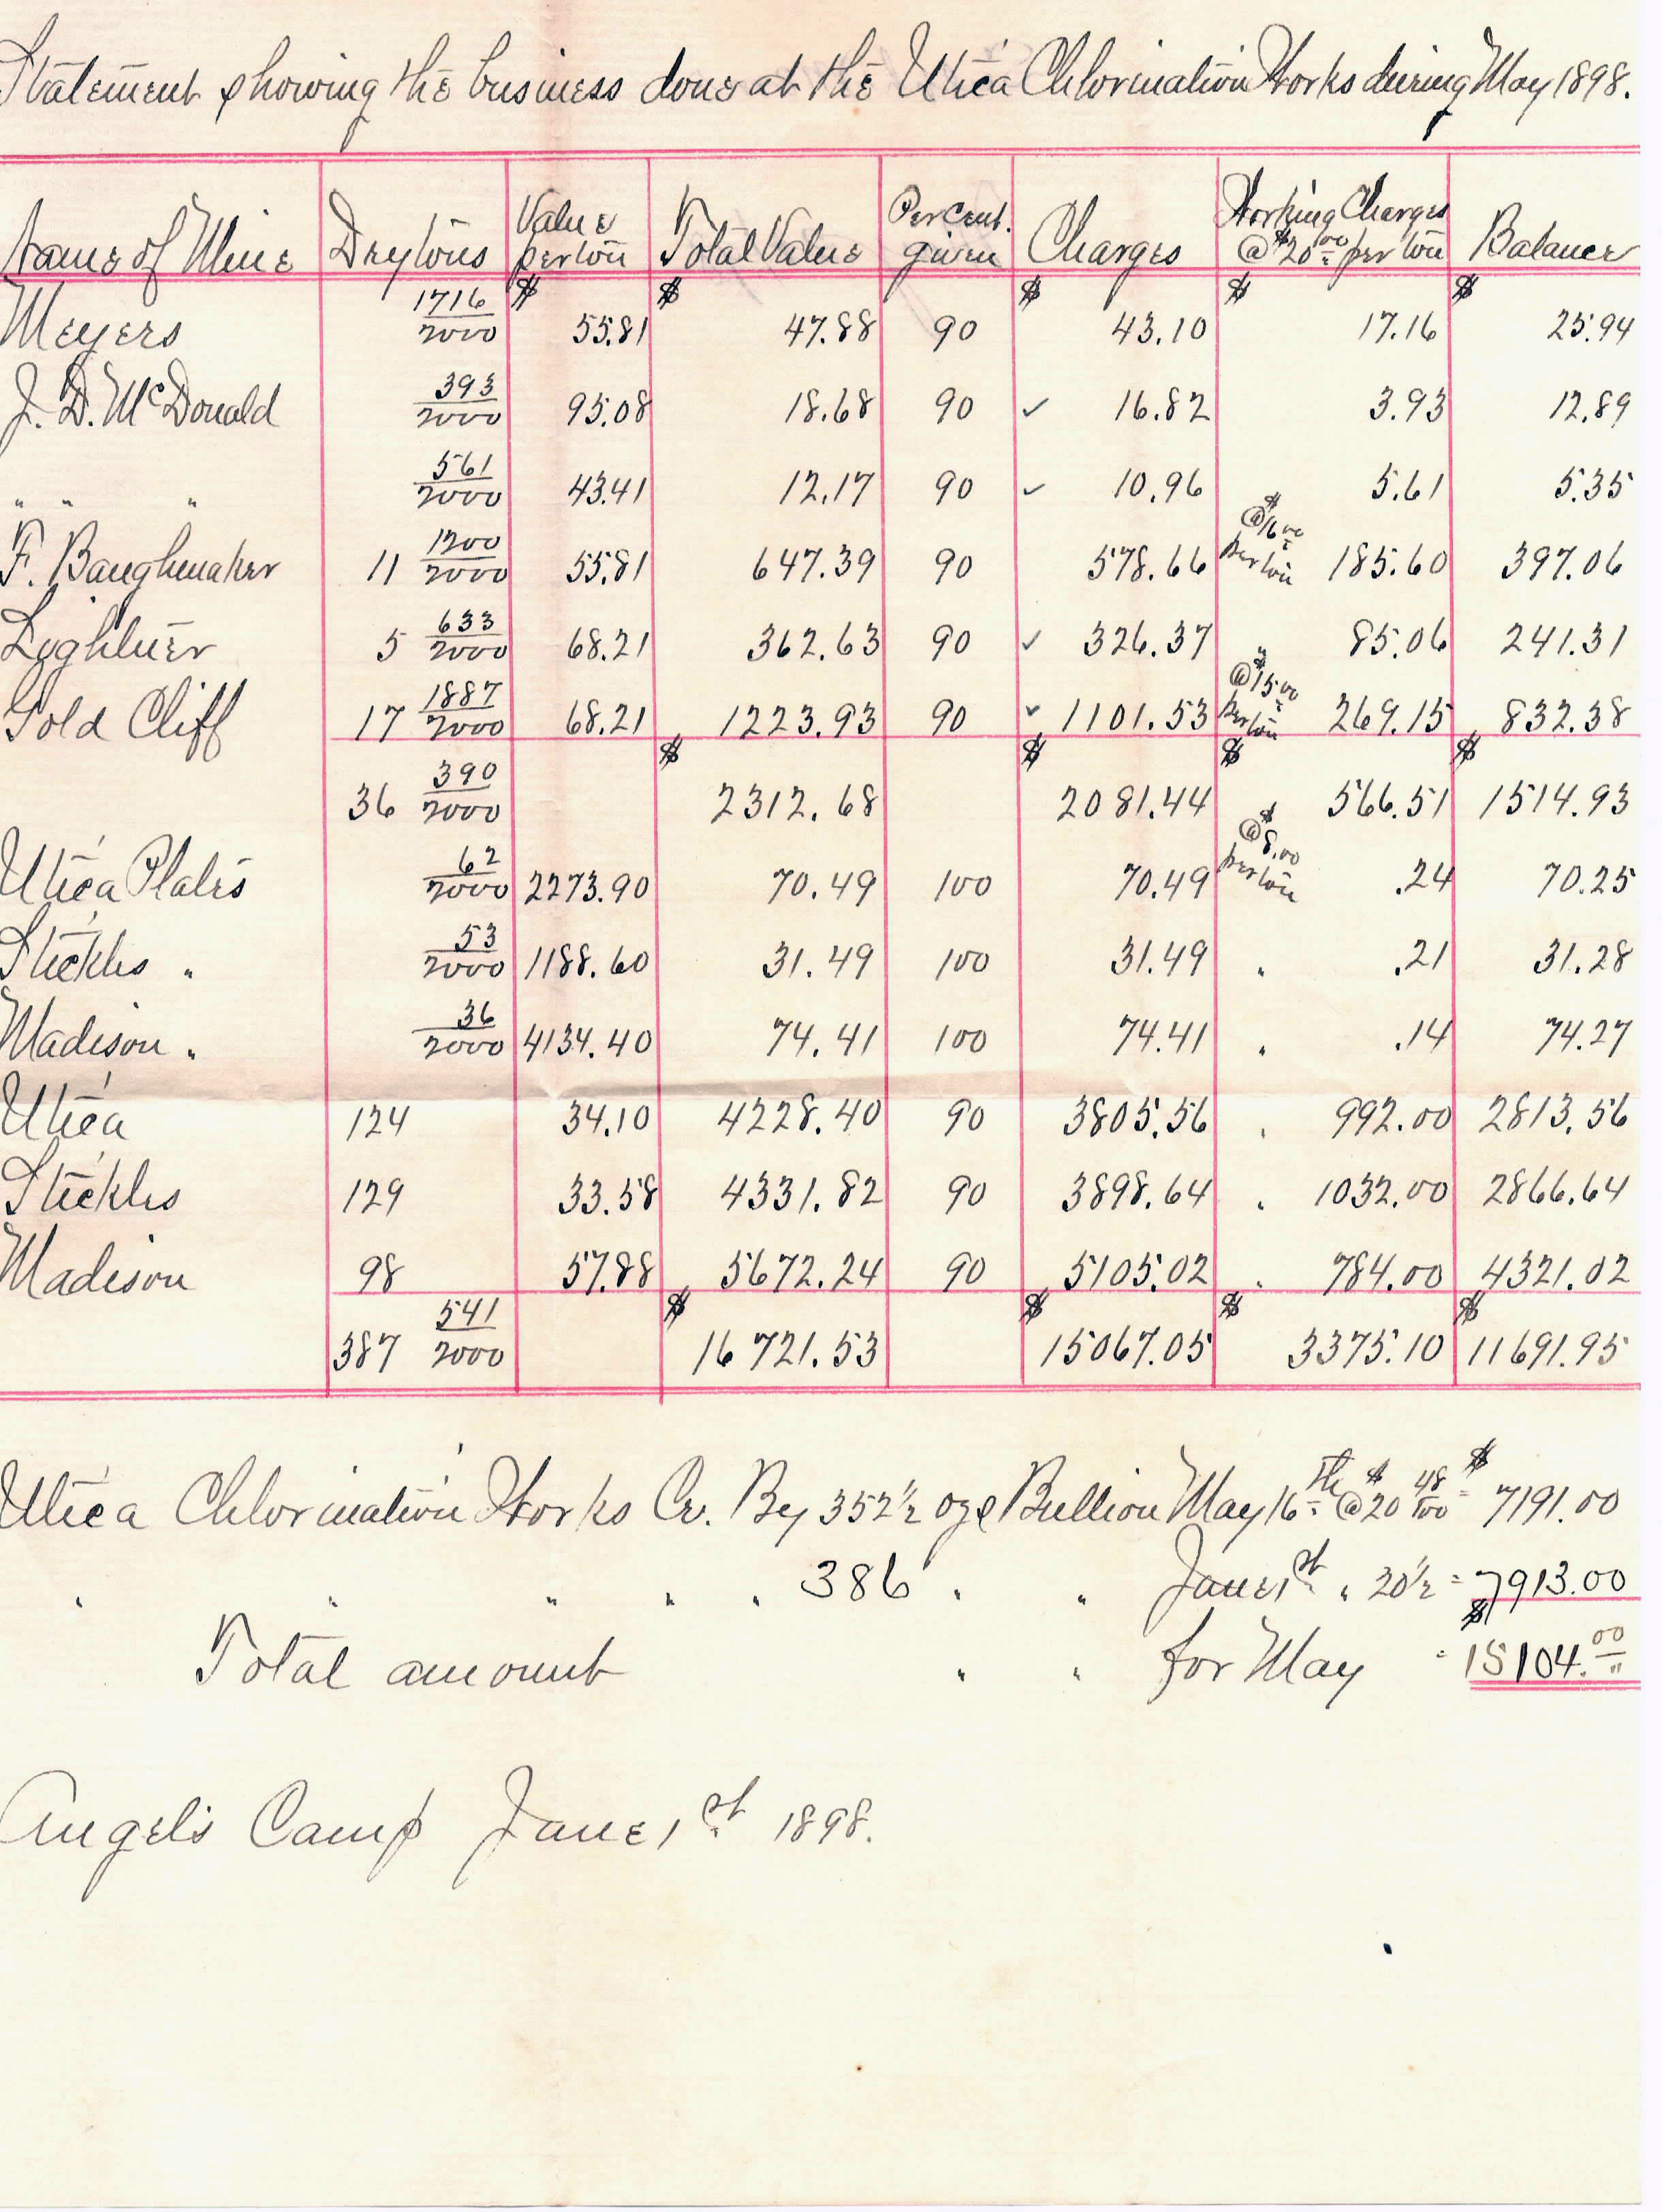 Statement showing the business done at the Utica Chlorination Works during May 1898.
Name of Mine Dry tons Value per ton Total Value Per cent. given Charges Working Charges @ $20.00 per ton Balance
Meyers 1716/2000 $ 55.81 $ 47.88 90 $ 43.10 $ 17.16 $ 25.94
J. D. McDonald 393/2000 95.08 18.68 90 ✓ 16.82 3.93 12.89
" " " 561/2000 43.41 12.17 90 ✓ 10.96 5.61 5.35
F. Baughmaker 11 1200/2000 55.81 647.39 90 578.66 @ $16.00 per ton 185.60 397.06
Lightner 5 633/2000 68.21 362.63 90 ✓ 326.37 " 85.06 241.31
Gold Cliff 17 1887/2000 68.21 1223.93 90 ✓ 1101.53 @ $15.00 per ton 269.15 832.38
36 390/2000 $ 2312.68 $ 2081.44 $ 566.51 $ 1514.93
Utica Plates 62/2000 2273.90 70.49 100 70.49 @ $8.00 per ton .24 70.25
Stickles " 53/2000 1188.60 31.49 100 31.49 " .21 31.28
Madison " 36/2000 4134.40 74.41 100 74.41 " .14 74.27
Utica 124 34.10 4228.40 90 3805.56 " 992.00 2813.56
Stickles 129 33.58 4331.82 90 3898.64 " 1032.00 2866.64
Madison 98 57.88 5672.24 90 5105.02 " 784.00 4321.02
387 541/2000 $ 16721.53 $ 15067.05 $ 3375.10 $ 11691.95
Utica Chlorination Works Cr. By 352½ ozs Bullion May 16th @ $20 48/100 = $ 7191.00
" " " " " 386 " " June 1st " 20½ = 7913.00
Total amount " " for May = $ 15104.00
Angels Camp June 1st 1898.